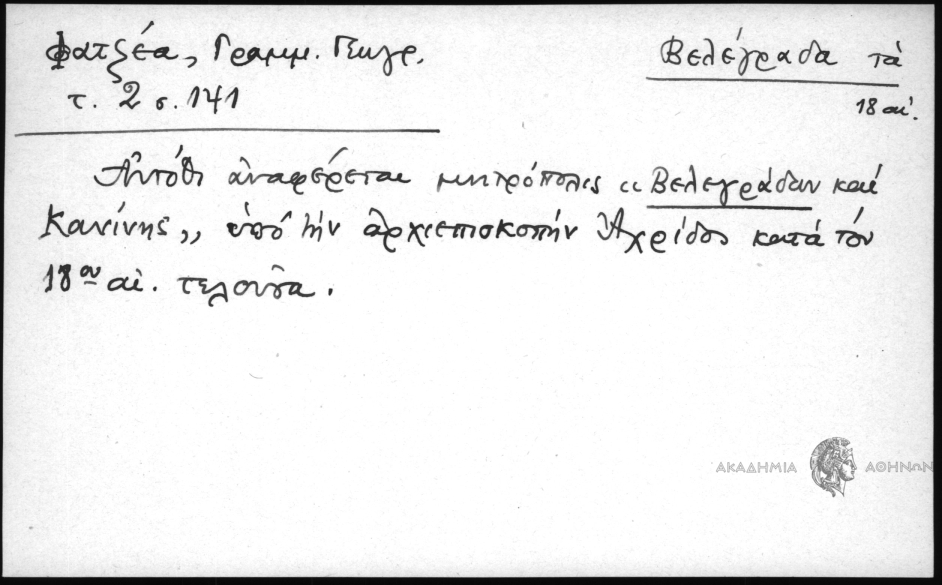 Φατζέα, Γραμμ. Γεωγρ.
τ. 2 σ. 141
Βελέγραδα τὰ
18 αἰ.
Αὐτόθι ἀναφέρεται μητρόπολις "Βελεγράδων καὶ
Κανίνης", ὑπὸ τὴν ἀρχιεπισκοπὴν Ἀχρίδος κατὰ τὸν
18ον αἰ. τελοῦσα.
ΑΚΑΔΗΜΙΑ ΑΘΗΝΩΝ